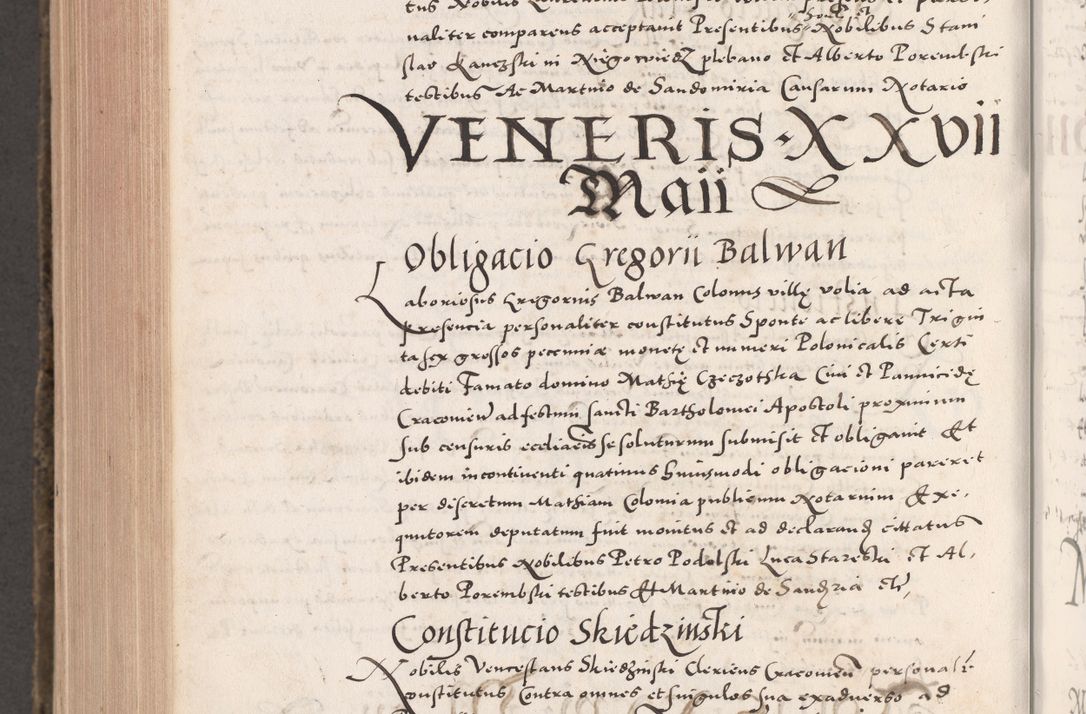 naliter comparens acceptavit Presentibus Nobilibus Stani
slao Kanczski in Niegowiesz plebano et Alberto Porembski
testibus Ac Martino de Sandomiria Causarum Notario
VENERIS · XXVII
Maii
Obligacio Gregorii Balwan
Laboriosus Gregorius Balwan Colonus villę volia ad acta
presencia personaliter constitutus Sponte ac libere Trigin
ta sex grossos pecuniæ monetę et numeri Polonicalis Certi
debiti Famato domino Mathię Czeczotska Civi et Pannicidę
Cracovien ad festum sancti Bartholomei Apostoli proximum
sub censuris ecclia͞cis se soluturum submisit et obligavit Et
ibidem incontinenti quatinus huiusmodi obligacioni pareret
per discretum Mathiam Colomia publicum Notarium & exe,
quutorem deputatum fuit monitus et ad declarand cittatus
Presentibus Nobilibus Petro Podolski Luca Stareski et Al,
berto Porembski testibus & Martino de Sandziria
Constitucio Skiedzinski
Nobilis Venceslaus Skiedzinski Clericus Cracovien personali
constitutus Contra omnes et singulos sua exadverso ad